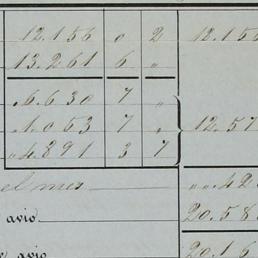 12.156 0 2 12.156
13.261 6 „
„6.630 7 „
„1.053 7 „ 12.57
„4.891 3 7
el mes „„42
avio 20.58
avio 20.16